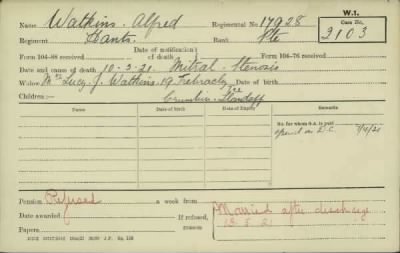 Name Watkins. Alfred Regimental No. 17928 W.I.
Regiment Hants. Rank Pte Case No. 3103
Form 104-88 received Date of notification of death Form 104-76 received
Date and cause of death 10-3-21. Mitral Stenosis
Widow Mrs Lucy J Watkins. 19 Date of birth
Children:— Crumlin
Names Date of Birth Date of Expiry Remarks
No. for whom S.A. is paid
7/4/21
Pension Refused a week from
Date awarded If refused, reason Married after discharge
Papers